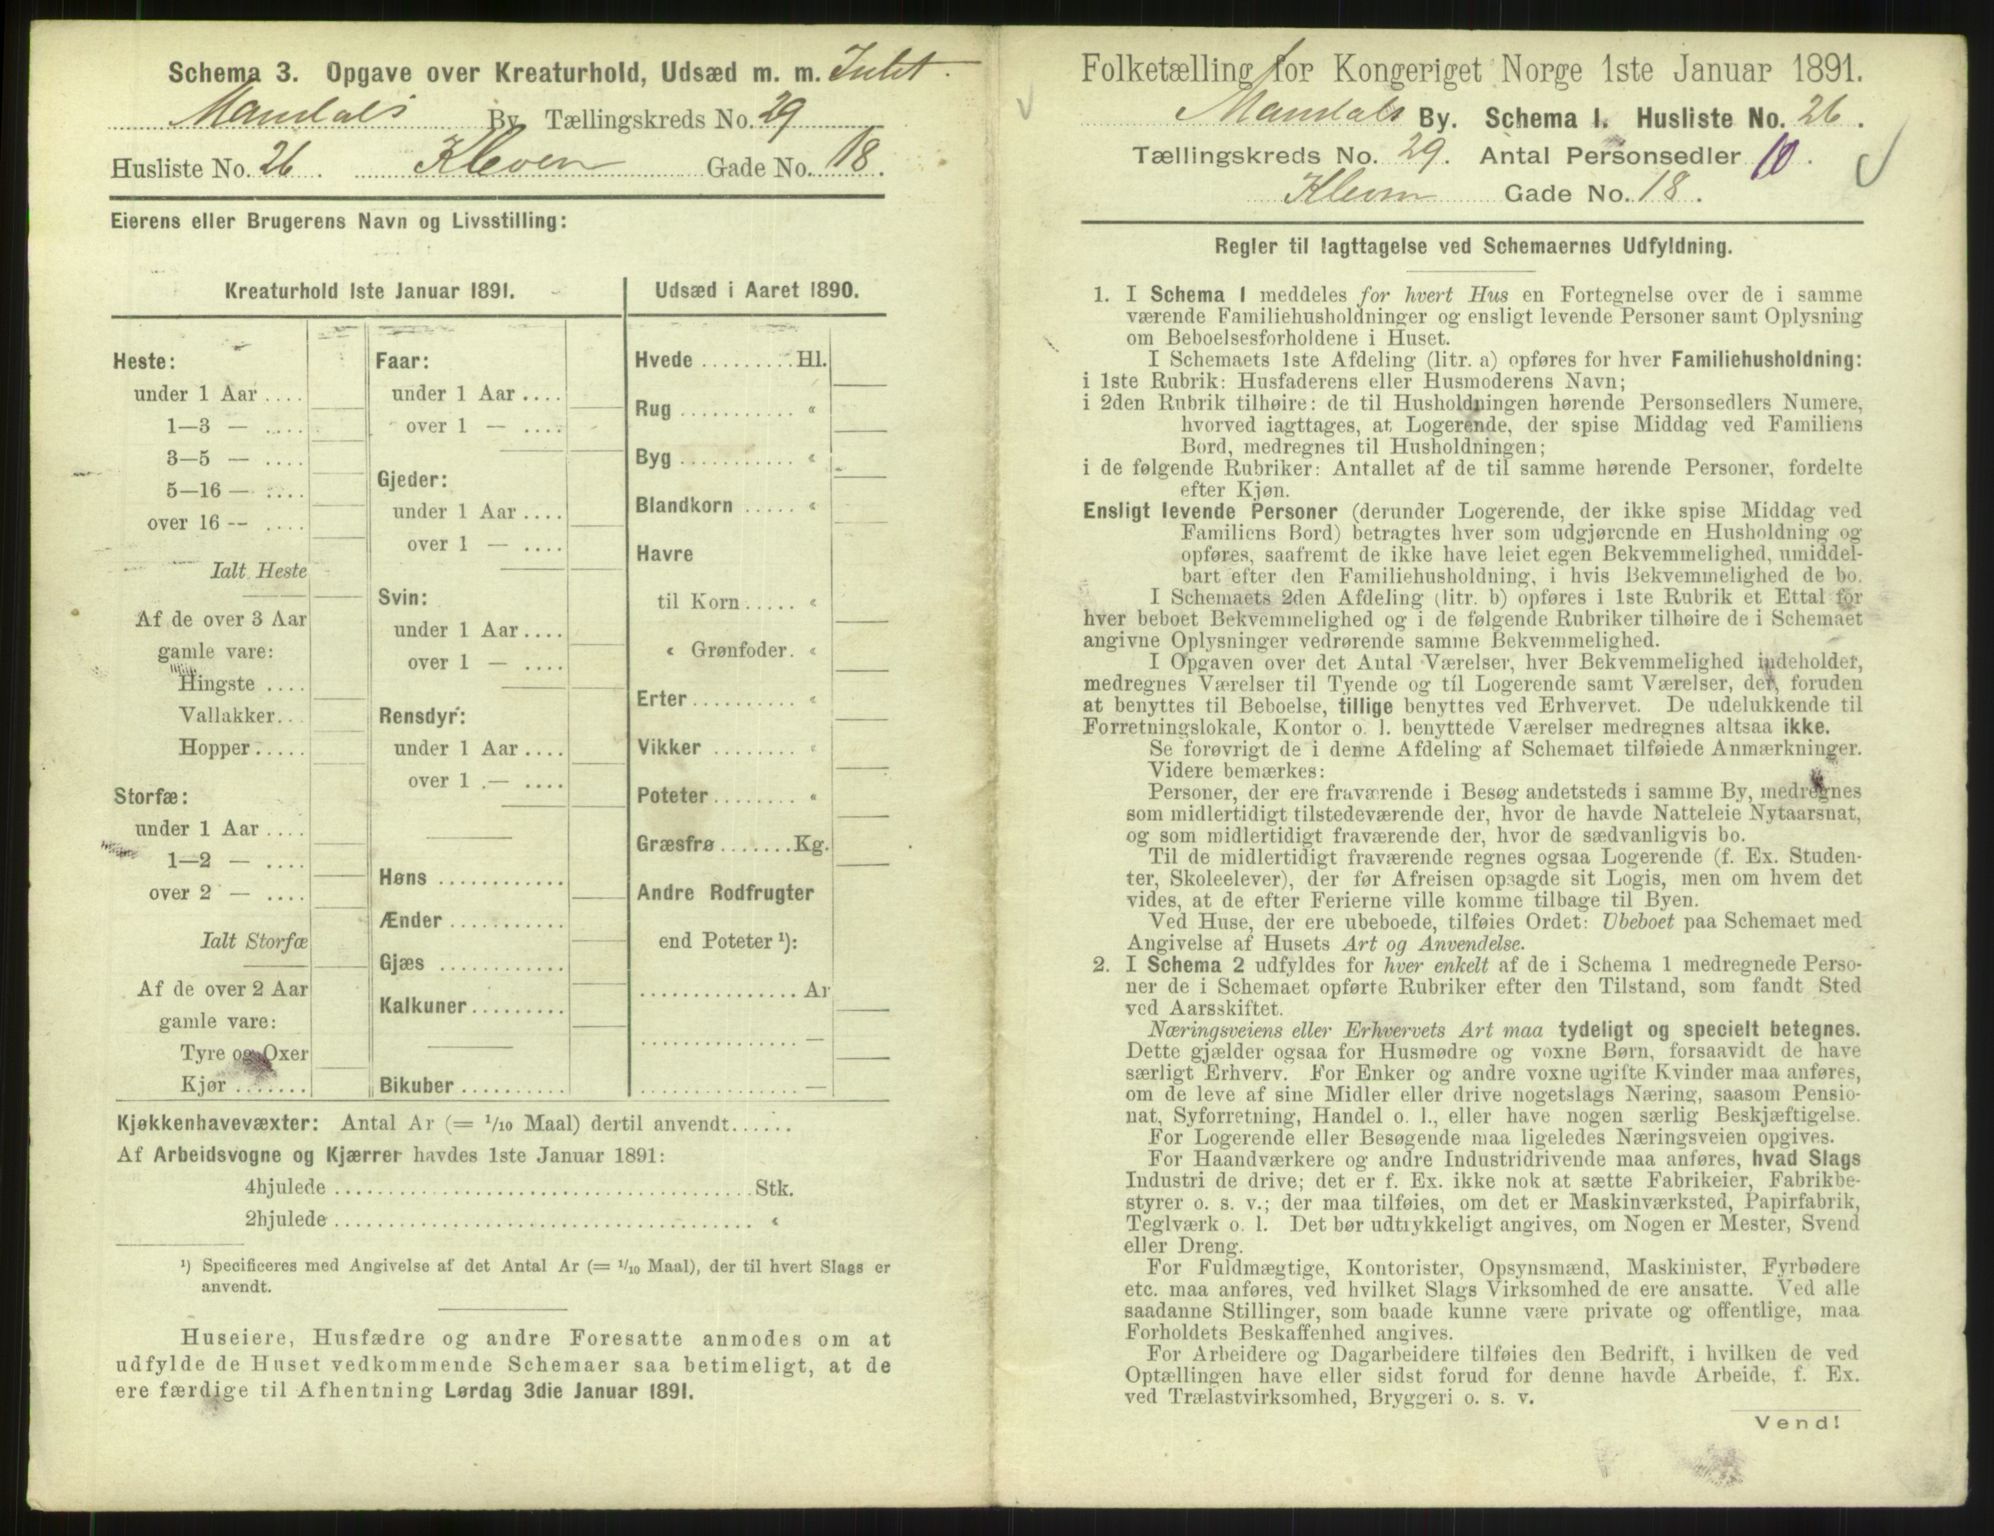 Schema 3. Opgave over Kreaturhold, Udsæd m. m. Intet.
Mandals By Tællingskreds No. 29
Husliste No. 26. Kleven Gade No. 18.
Eierens eller Brugerens Navn og Livsstilling:
Kreaturhold 1ste Januar 1891.
Heste:
under 1 Aar ....
1—3 — ....
3—5 — ....
5—16 — ....
over 16 -- ....
Ialt Heste
Af de over 3 Aar
gamle vare:
Hingste ....
Vallakker...
Hopper.....
Storfæ:
under 1 Aar ....
1—2 — ....
over 2 — ....
Ialt Storfæ
Af de over 2 Aar
gamle vare:
Tyre og Oxer
Kjør .......
Faar:
under 1 Aar ....
over 1 — ....
Gjeder:
under 1 Aar ....
over 1 — ....
Svin:
under 1 Aar ....
over 1 — ....
Rensdyr:
under 1 Aar ....
over 1 — ....
Høns ............
Ænder ...........
Gjæs ............
Kalkuner .........
Bikuber ..........
Udsæd i Aaret 1890.
Hvede .........Hl.
Rug .......... «
Byg .......... «
Blandkorn ..... «
Havre
til Korn ..... «
« Grønfoder. «
Erter .......... «
Vikker ....... «
Poteter ........ «
Græsfrø .......Kg.
Andre Rodfrugter
end Poteter ¹):
............... Ar
............... —
............... —
Kjøkkenhavevæxter: Antal Ar (= 1/10 Maal) dertil anvendt......
Af Arbeidsvogne og Kjærrer havdes 1ste Januar 1891:
4hjulede ........................................ Stk.
2hjulede ........................................ «
¹) Specificeres med Angivelse af det Antal Ar (= 1/10 Maal), der til hvert Slags er
anvendt.
Huseiere, Husfædre og andre Foresatte anmodes om at
udfylde de Huset vedkommende Schemaer saa betimeligt, at de
ere færdige til Afhentning Lørdag 3die Januar 1891.
Folketælling for Kongeriget Norge 1ste Januar 1891.
Mandals By. Schema I. Husliste No. 26.
Tællingskreds No. 29. Antal Personsedler 10.
Kleven Gade No. 18.
Regler til Iagttagelse ved Schemaernes Udfyldning.
1. I Schema 1 meddeles for hvert Hus en Fortegnelse over de i samme
værende Familiehusholdninger og ensligt levende Personer samt Oplysning
om Beboelsesforholdene i Huset.
I Schemaets 1ste Afdeling (litr. a) opføres for hver Familiehusholdning:
i 1ste Rubrik: Husfaderens eller Husmoderens Navn;
i 2den Rubrik tilhøire: de til Husholdningen hørende Personsedlers Numere,
hvorved iagttages, at Logerende, der spise Middag ved Familiens
Bord, medregnes til Husholdningen;
i de følgende Rubriker: Antallet af de til samme hørende Personer, fordelte
efter Kjøn.
Ensligt levende Personer (derunder Logerende, der ikke spise Middag ved
Familiens Bord) betragtes hver som udgjørende en Husholdning og
opføres, saafremt de ikke have leiet egen Bekvemmelighed, umiddel-
bart efter den Familiehusholdning, i hvis Bekvemmelighed de bo.
I Schemaets 2den Afdeling (litr. b) opføres i 1ste Rubrik et Ettal for
hver beboet Bekvemmelighed og i de følgende Rubriker tilhøire de i Schemaet
angivne Oplysninger vedrørende samme Bekvemmelighed.
I Opgaven over det Antal Værelser, hver Bekvemmelighed indeholder,
medregnes Værelser til Tyende og til Logerende samt Værelser, der, foruden
at benyttes til Beboelse, tillige benyttes ved Erhvervet. De udelukkende til
Forretningslokale, Kontor o. l. benyttede Værelser medregnes altsaa ikke.
Se forøvrigt de i denne Afdeling af Schemaet tilføiede Anmærkninger.
Videre bemærkes:
Personer, der ere fraværende i Besøg andetsteds i samme By, medregnes
som midlertidigt tilstedeværende der, hvor de havde Natteleie Nytaarsnat,
og som midlertidigt fraværende der, hvor de sædvanligvis bo.
Til de midlertidigt fraværende regnes ogsaa Logerende (f. Ex. Studen-
ter, Skoleelever), der før Afreisen opsagde sit Logis, men om hvem det
vides, at de efter Ferierne ville komme tilbage til Byen.
Ved Huse, der ere ubeboede, tilføies Ordet: Ubeboet paa Schemaet med
Angivelse af Husets Art og Anvendelse.
2. I Schema 2 udfyldes for hver enkelt af de i Schema 1 medregnede Perso-
ner de i Schemaet opførte Rubriker efter den Tilstand, som fandt Sted
ved Aarsskiftet.
Næringsveiens eller Erhvervets Art maa tydeligt og specielt betegnes.
Dette gjælder ogsaa for Husmødre og voxne Børn, forsaavidt de have
særligt Erhverv. For Enker og andre voxne ugifte Kvinder maa anføres,
om de leve af sine Midler eller drive nogetslags Næring, saasom Pensio-
nat, Syforretning, Handel o. l., eller have nogen særlig Beskjæftigelse.
For Logerende eller Besøgende maa ligeledes Næringsveien opgives.
For Haandværkere og andre Industridrivende maa anføres, hvad Slags
Industri de drive; det er f. Ex. ikke nok at sætte Fabrikeier, Fabrikbe-
styrer o. s. v.; der maa tilføies, om det er Maskinværksted, Papirfabrik,
Teglværk o. l. Det bør udtrykkeligt angives, om Nogen er Mester, Svend
eller Dreng.
For Fuldmægtige, Kontorister, Opsynsmænd, Maskinister, Fyrbødere
etc. maa anføres, ved hvilket Slags Virksomhed de ere ansatte. Ved alle
saadanne Stillinger, som baade kunne være private og offentlige, maa
Forholdets Beskaffenhed angives.
For Arbeidere og Dagarbeidere tilføies den Bedrift, i hvilken de ved
Optællingen have eller sidst forud for denne havde Arbeide, f. Ex.
ved Trælastvirksomhed, Bryggeri o. s. v.
Vend!